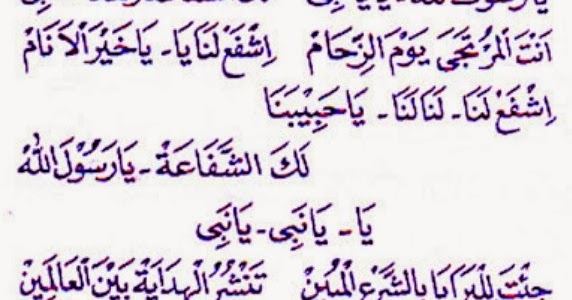 اَنْتَ الْمُرْتَجَى يَوْمَ الزِّحَامْ اِشْفَعْ لَنَا يَا - يَا خَيْرَ الْاَنَامْ
اِشْفَعْ لَنَا - لَنَا لَنَا - يَا حَبِيْبَنَا
لَكَ الشَّفَاعَةْ - يَا رَسُوْلَ اللّٰهْ
يَا - يَا نَبِى - يَا نَبِى
جِئْتَ لِلْبَرَايَا بِالشَّرْعِ الْمُبِيْنْ تَنْشُرُ الْهِدَايَةْ بَيْنَ الْعَالَمِيْنْ